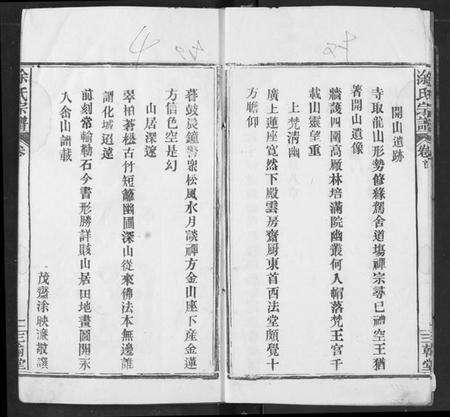 涂氏宗譜 卷首 三 翰堂
開山遺跡
寺取龍山形勢修緣創舍道場禪宗尋已禮空王猶
著開山遺像
牆護四圍高厰林培滿院幽叢何人帽落梵王宮千
載山靈望重
上梵清幽
廣上蓮座寬然下殿雲房齋厨東首西法堂頗覺十
方瞻仰
暮鼓晨鐘警衆松風水月談禪方金山座下産金蓮
方信色空是幻
山居深邃
翠柏蒼松古竹短籬幽圃深山從來佛法本無邊誰
謂化域迢遠
前刻常輸勒石今書形勝詳賅山居田地畫圖開永
入舍山譜載
茂齋涂映濂敬譔
涂氏宗譜 卷 二 三翰堂